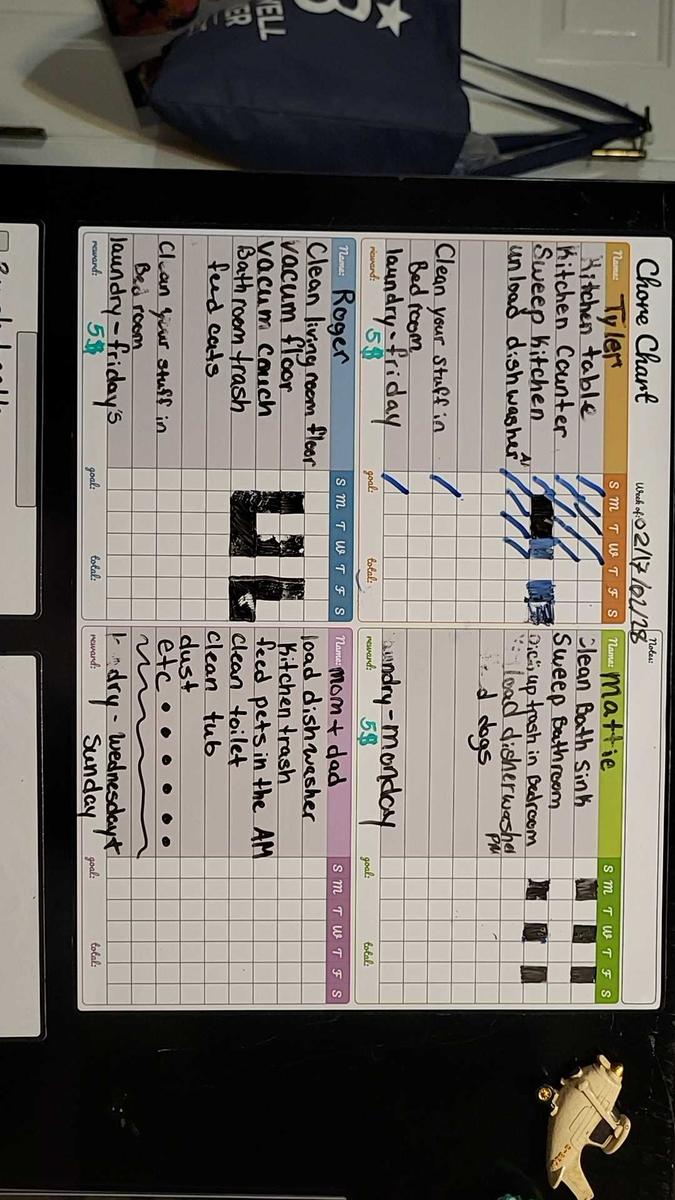 Chore Chart
Week of: 02/17/02/28
Notes:
Name: Tyler
S M T W T F S
Kitchen table
Kitchen Counter
Sweep Kitchen
unload dishwasher
Clean your stuff in
Bed room
laundry - friday
reward: 5$
goal:
total:
Name: Mattie
S M T W T F S
Clean Bath Sink
Sweep Bathroom
Pick up trash in Bedroom
load disherwasher PM
dogs
laundry - monday
reward: 5$
goal:
total:
Name: Roger
S M T W T F S
Clean living room floor
vacum floor
vacum couch
Bathroom trash
feed cats
Clean your stuff in
Bed room
laundry - friday's
reward: 5$
goal:
total:
Name: mom + dad
S M T W T F S
load dishwasher
Kitchen trash
feed pets in the AM
clean toilet
clean tub
dust
etc.......
laundry - wednesday +
reward: Sunday
goal:
total:
WELL